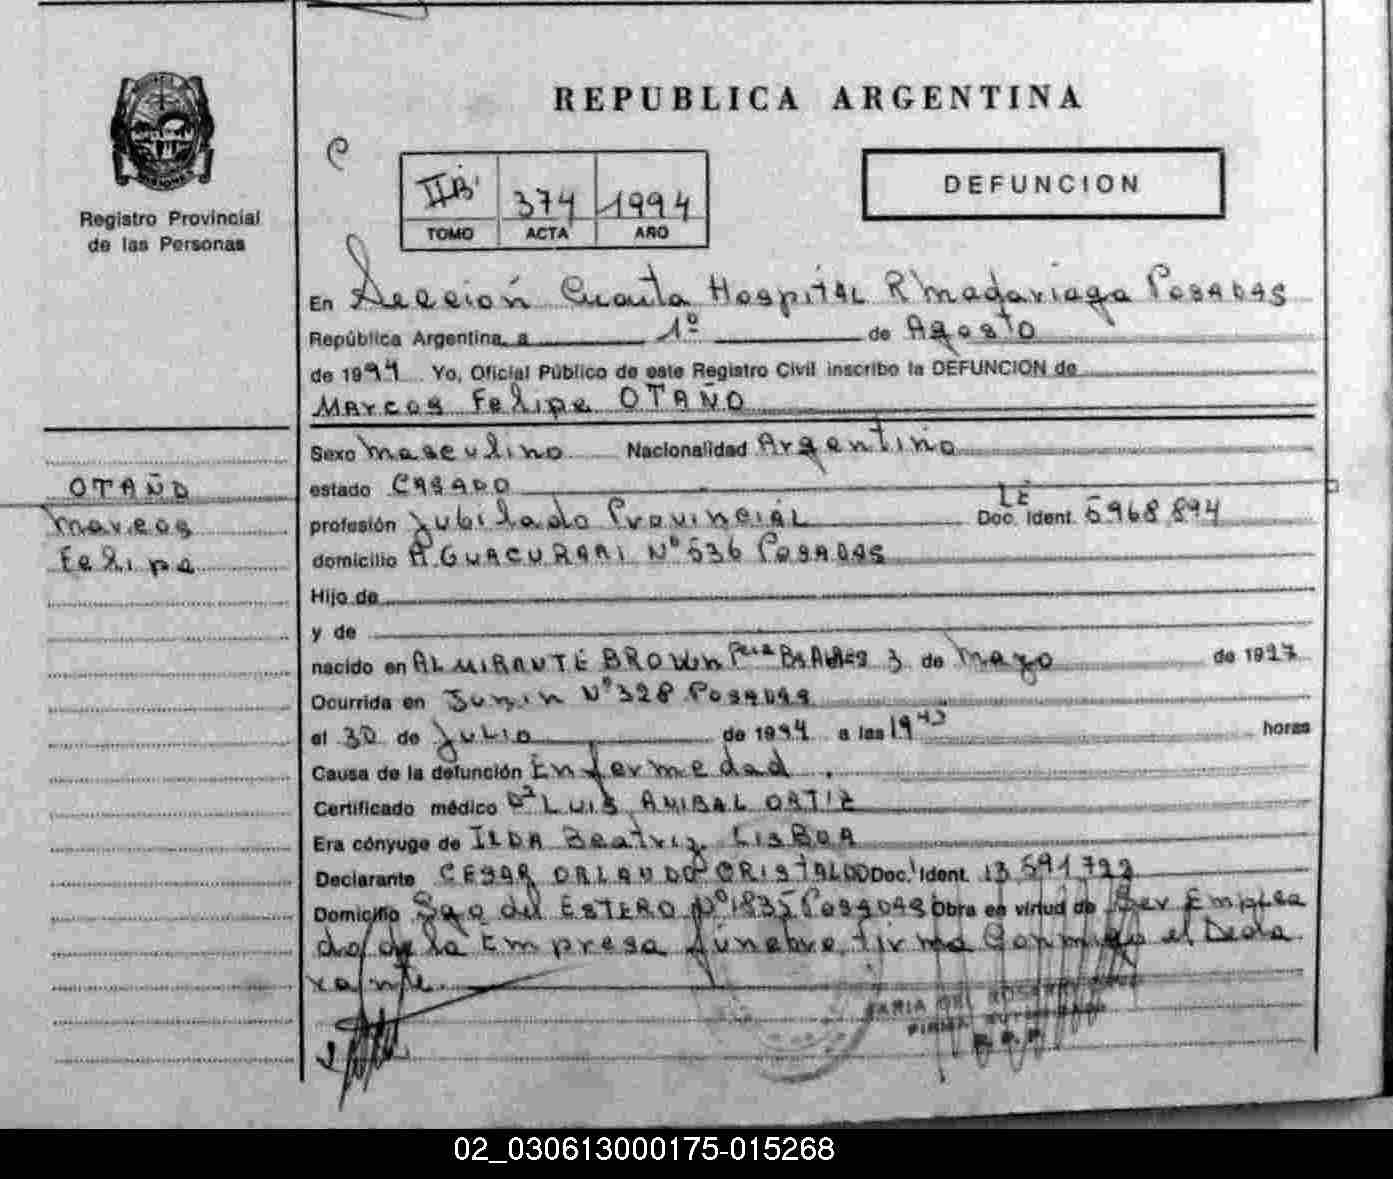 REPUBLICA ARGENTINA
Registro Provincial
de las Personas
IIB
374
1994
TOMO
ACTA
AÑO
DEFUNCION
En Sección Cuarta Hospital R Madariaga Posadas
República Argentina, a 1º de Agosto
de 1994 Yo, Oficial Público de este Registro Civil inscribo la DEFUNCION de
Marcos Felipe OTAÑO
OTAÑO
Marcos
Felipe
Sexo Masculino Nacionalidad Argentino
estado CASADO
profesión Jubilado Provincial LE Doc. Ident. 5968894
domicilio A. GUACURARI Nº 536 Posadas
Hijo de
y de
nacido en ALMIRANTE BROWN Pcia BsAires 3 de Mayo de 1927
Ocurrida en Junin Nº 328 Posadas
el 30 de Julio de 1994 a las 19 45 horas
Causa de la defunción Enfermedad.
Certificado médico Dr LUIS ANIBAL ORTIZ
Era cónyuge de ILDA Beatriz LISBOA
Declarante CESAR ORLANDO CRISTALDO Doc. Ident. 13591722
Domicilio Sgo del ESTERO Nº 1835 Posadas Obra en virtud de Ser Emplea
do de la Empresa fúnebre firma Conmigo el Decla
rante.
MARIA DEL
FIRMA
02_030613000175-015268